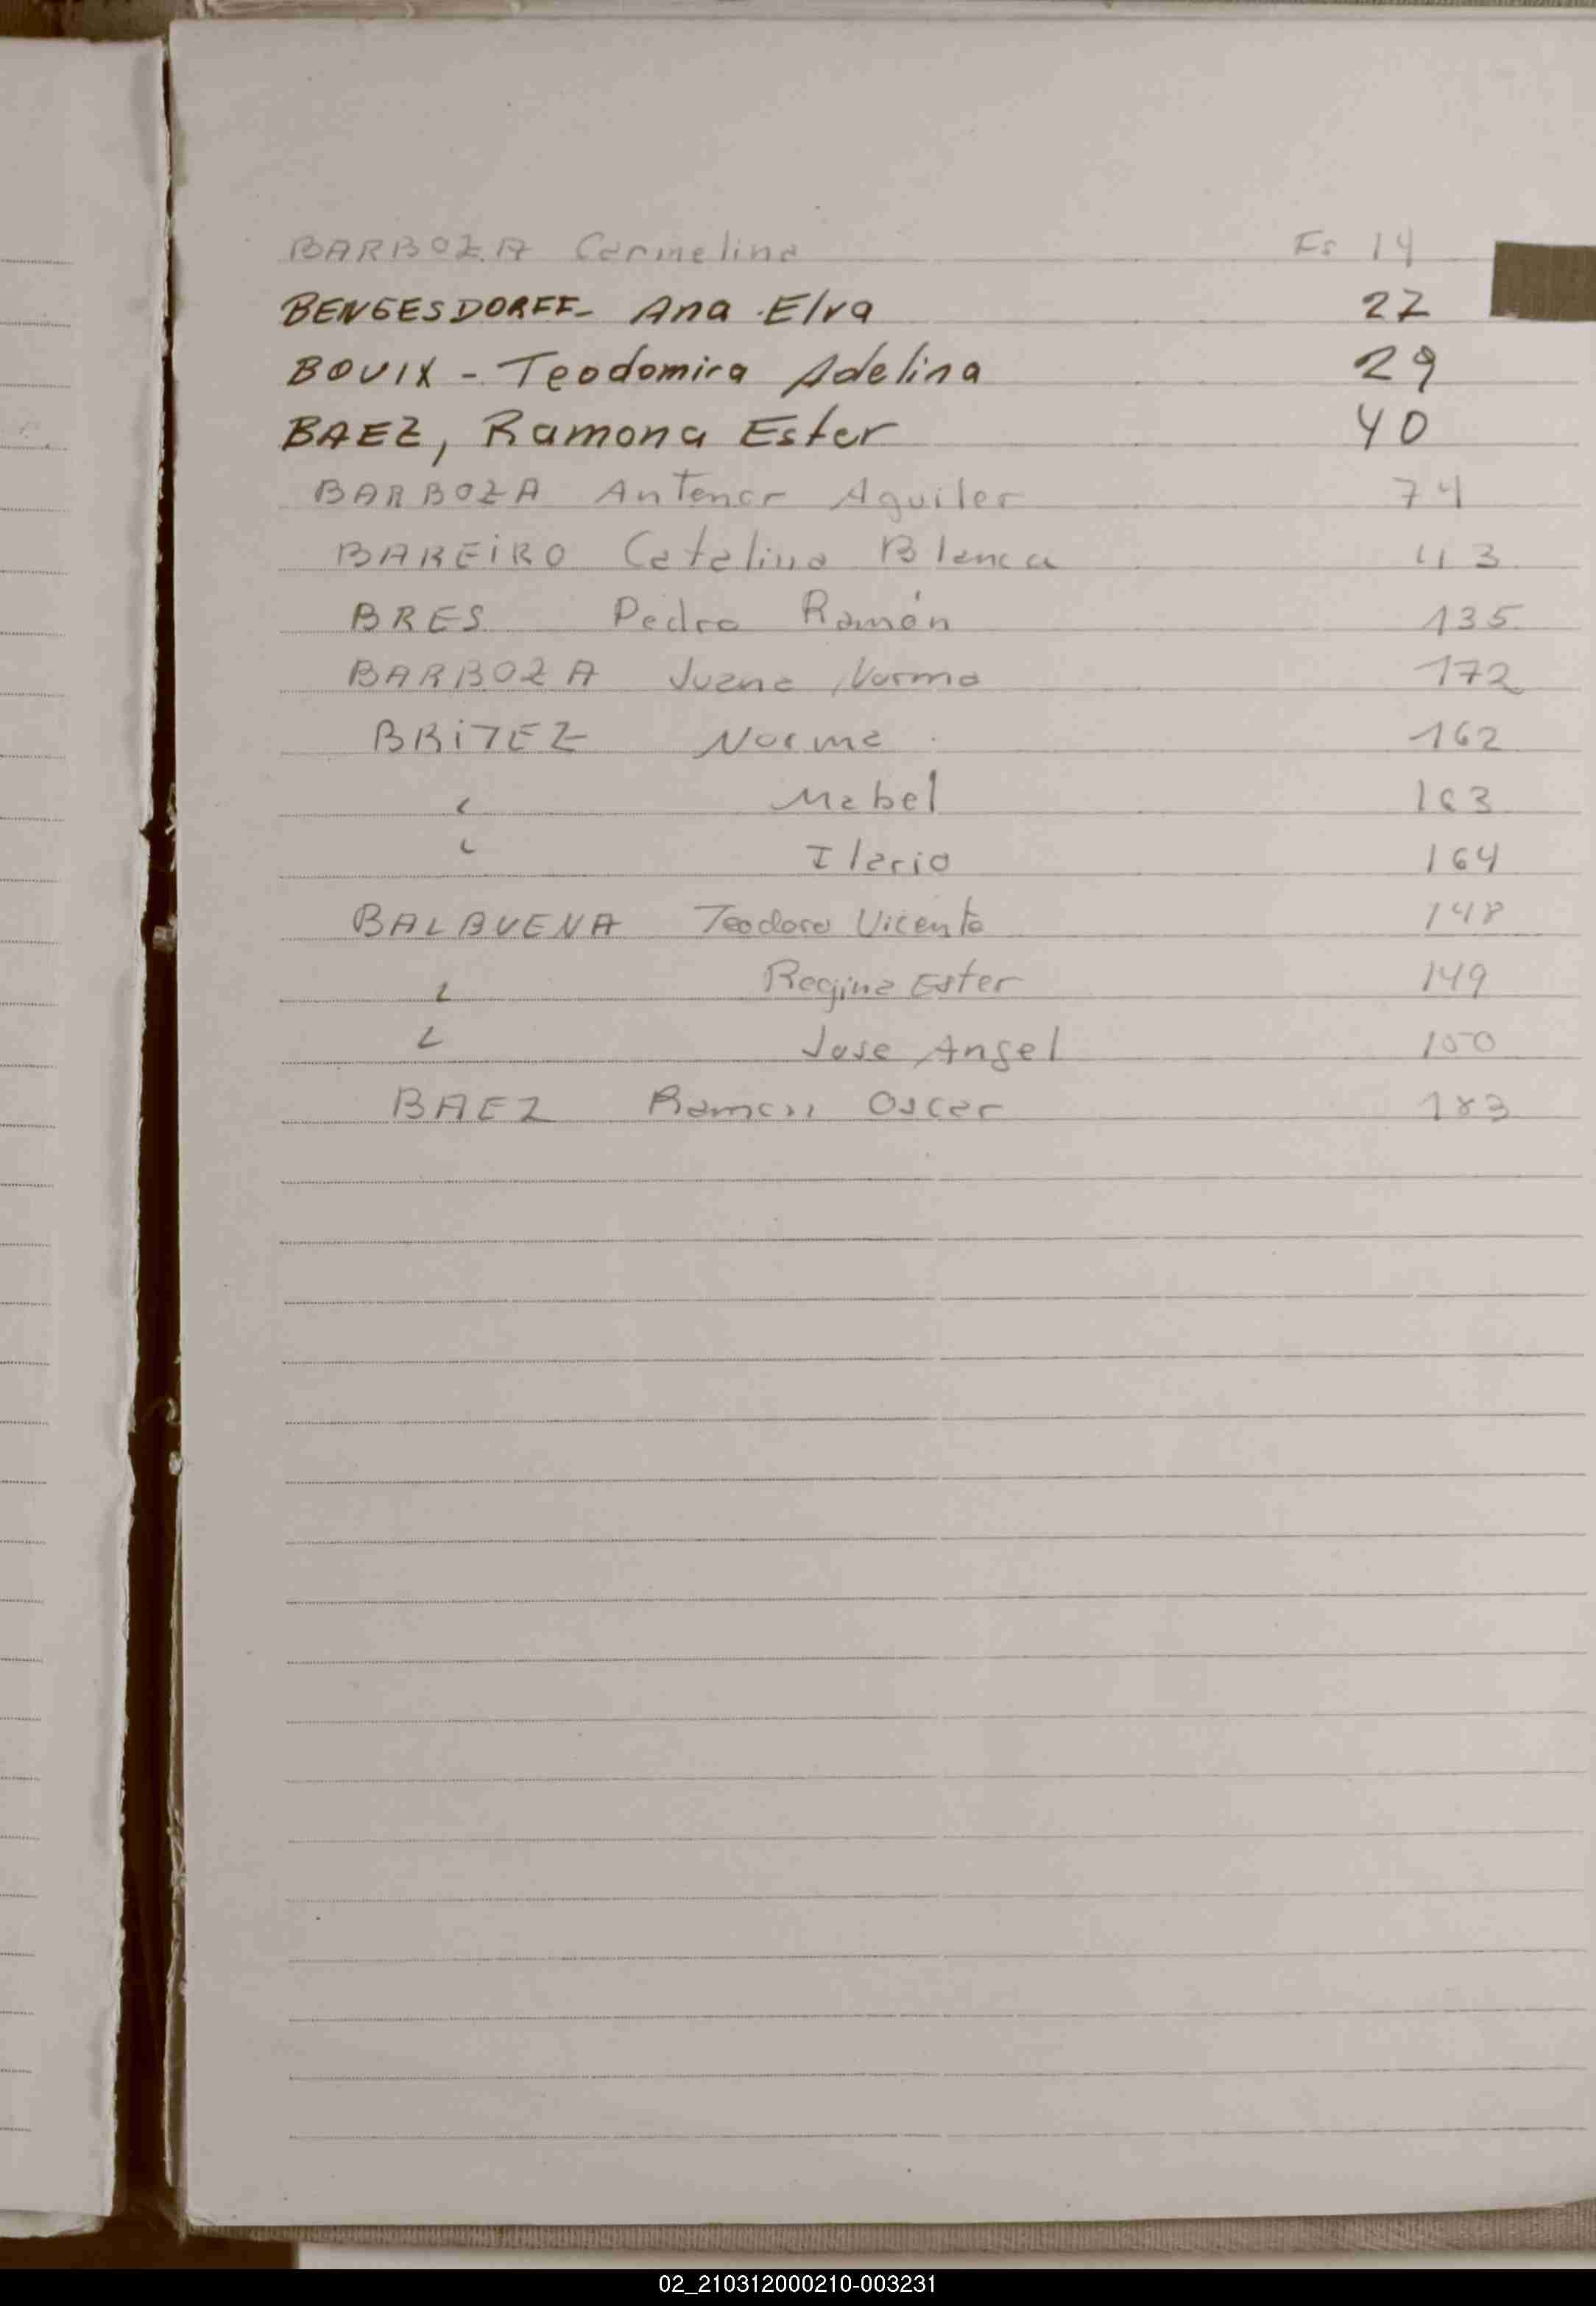 BARBOZA Carmelina Fs 14
BENGESDORFF- Ana Elva 27
BOUIX - Teodomira Adelina 29
BAEZ, Ramona Ester 40
BARBOZA Antenor Aguiler 74
BAREIRO Catalina Blanca 113
BRES Pedro Ramón 135
BARBOZA Juana Norma 172
BRITEZ Norma 162
" Mabel 163
" Ilario 164
BALBUENA Teodoro Vicente 148
" Regina Ester 149
" Jose Angel 150
BAEZ Ramon Oscar 183
02_210312000210-003231